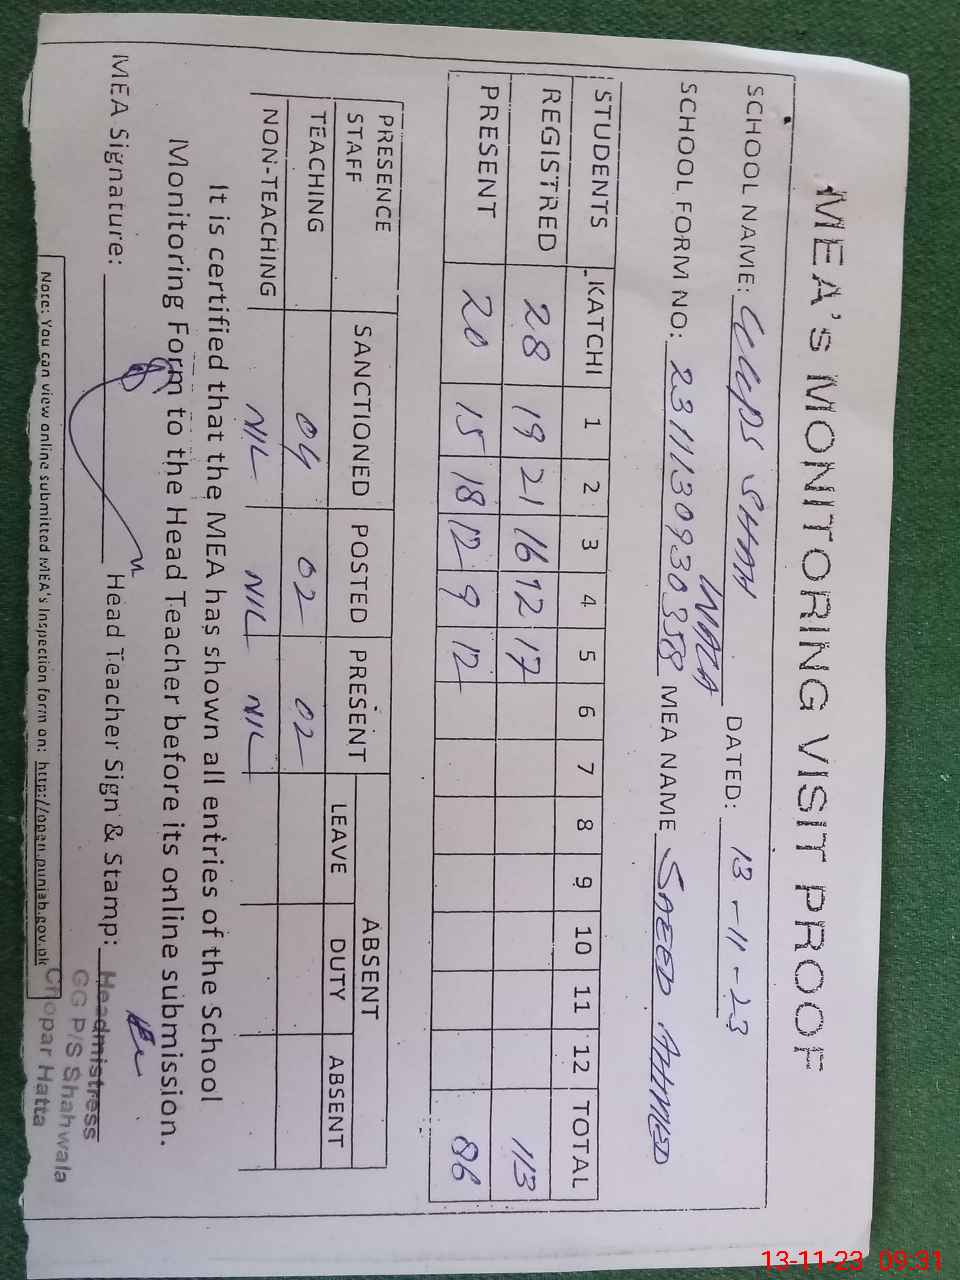 MEA's MONITORING VISIT PROOF
SCHOOL NAME: GGPS SHAH WALA DATED: 13-11-23
SCHOOL FORM NO: 2311130930358 MEA NAME SAEED AHMED
STUDENTS KATCHI 1 2 3 4 5 6 7 8 9 10 11 12 TOTAL
REGISTRED 28 19 21 16 12 17 113
PRESENT 20 15 18 12 9 12 86
PRESENCE STAFF SANCTIONED POSTED PRESENT ABSENT
LEAVE DUTY ABSENT
TEACHING 04 02 02
NON-TEACHING NIL NIL NIL
It is certified that the MEA has shown all entries of the School
Monitoring Form to the Head Teacher before its online submission.
MEA Signature: Head Teacher Sign & Stamp:
Headmistress
GG P/S Shahwala
Chopar Hatta
Note: You can view online submitted MEA's Inspection form on: http://open.punjab.gov.pk
13-11-23 09:31